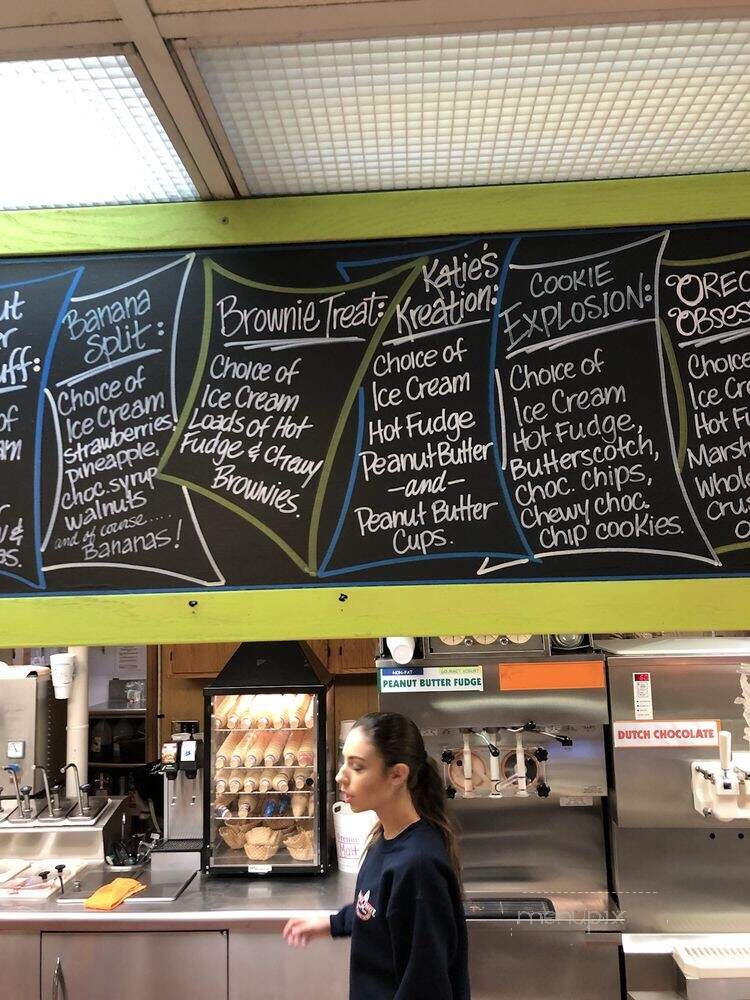 ut
r
uff:
of
am
u &
as.
Banana
Split:
Choice of
Ice Cream
strawberries,
pineapple,
choc. syrup
walnuts
and of course.....
Bananas!
Brownie Treat:
Choice of
Ice Cream
Loads of Hot
Fudge & Chewy
Brownies.
Katie's
Kreation:
Choice of
Ice Cream
Hot Fudge
Peanut Butter
-and-
Peanut Butter
Cups.
COOKIE
EXPLOSION:
Choice of
Ice Cream
Hot Fudge,
Butterscotch,
Choc. Chips,
Chewy choc.
chip cookies.
OREO
OBSES
Choice
Ice Cr
Hot F
Marsh
Whole
Crus
O
NON-FAT
GOURMET YOGURT
PEANUT BUTTER FUDGE
DUTCH CHOCOLATE
Malt
menupix